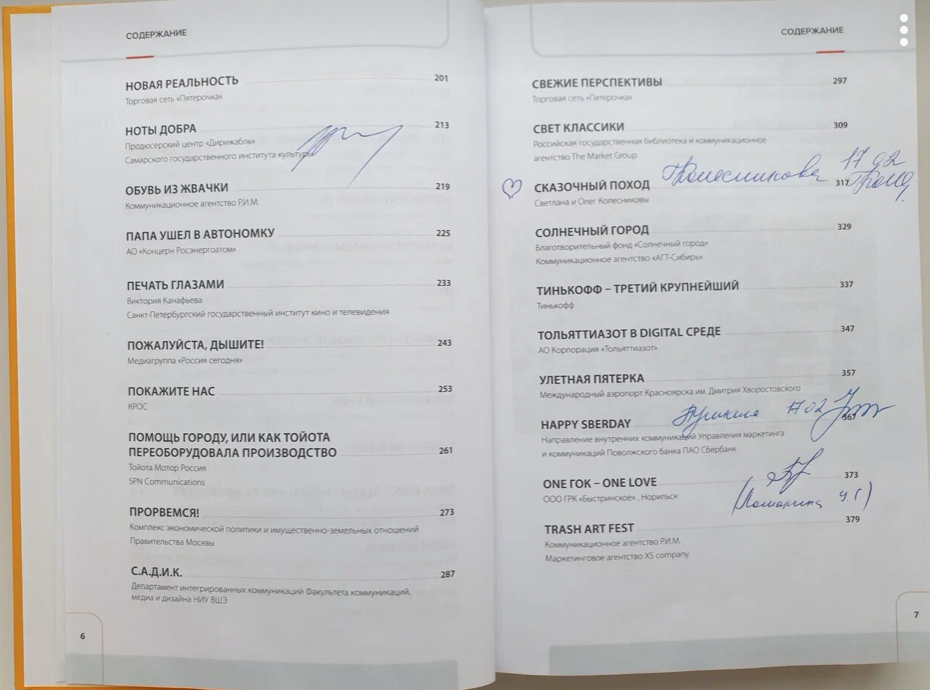 СОДЕРЖАНИЕ
НОВАЯ РЕАЛЬНОСТЬ 201
Торговая сеть «Пятерочка»
НОТЫ ДОБРА 213
Продюсерский центр «Дирижабль»
Самарского государственного института культуры
ОБУВЬ ИЗ ЖВАЧКИ 219
Коммуникационное агентство Р.И.М.
ПАПА УШЕЛ В АВТОНОМКУ 225
АО «Концерн Росэнергоатом»
ПЕЧАТЬ ГЛАЗАМИ 233
Виктория Канафьева
Санкт-Петербургский государственный институт кино и телевидения
ПОЖАЛУЙСТА, ДЫШИТЕ! 243
Медиагруппа «Россия сегодня»
ПОКАЖИТЕ НАС 253
КРОС
ПОМОЩЬ ГОРОДУ, ИЛИ КАК ТОЙОТА
ПЕРЕОБОРУДОВАЛА ПРОИЗВОДСТВО 261
Тойота Мотор Россия
SPN Communications
ПРОРВЕМСЯ! 273
Комплекс экономической политики и имущественно-земельных отношений
Правительства Москвы
С.А.Д.И.К. 287
Департамент интегрированных коммуникаций Факультета коммуникаций,
медиа и дизайна НИУ ВШЭ
6
СОДЕРЖАНИЕ
СВЕЖИЕ ПЕРСПЕКТИВЫ 297
Торговая сеть «Пятерочка»
СВЕТ КЛАССИКИ 309
Российская государственная библиотека и коммуникационное
агентство The Market Group
СКАЗОЧНЫЙ ПОХОД 317
Светлана и Олег Колесниковы
СОЛНЕЧНЫЙ ГОРОД 329
Благотворительный фонд «Солнечный город»
Коммуникационное агентство «АГТ-Сибирь»
ТИНЬКОФФ – ТРЕТИЙ КРУПНЕЙШИЙ 337
Тинькофф
ТОЛЬЯТТИАЗОТ В DIGITAL СРЕДЕ 347
АО Корпорация «Тольяттиазот»
УЛЕТНАЯ ПЯТЕРКА 357
Международный аэропорт Красноярска им. Дмитрия Хворостовского
HAPPY SBERDAY 367
Направление внутренних коммуникаций Управления маркетинга
и коммуникаций Поволжского банка ПАО Сбербанк
ONE ГОК – ONE LOVE 373
ООО ГРК «Быстринское», Норильск
TRASH ART FEST 379
Коммуникационное агентство Р.И.М.
Маркетинговое агентство XS company
7